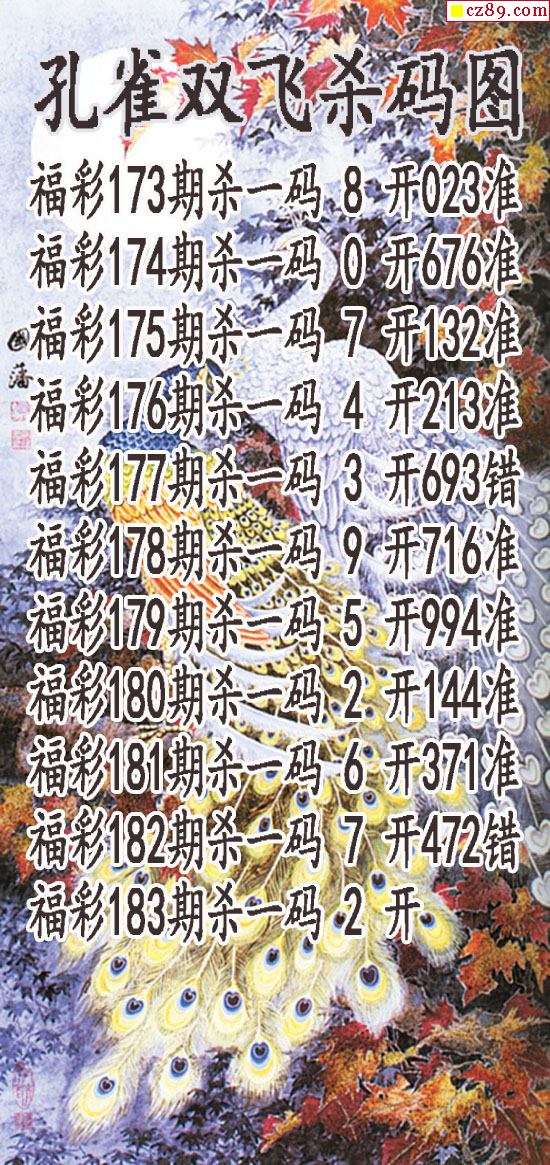 cz89.com
孔雀双飞杀码图
福彩173期杀一码 8 开023准
福彩174期杀一码 0 开676准
福彩175期杀一码 7 开132准
福彩176期杀一码 4 开213准
福彩177期杀一码 3 开693错
福彩178期杀一码 9 开716准
福彩179期杀一码 5 开994准
福彩180期杀一码 2 开144准
福彩181期杀一码 6 开371准
福彩182期杀一码 7 开472错
福彩183期杀一码 2 开
國藩